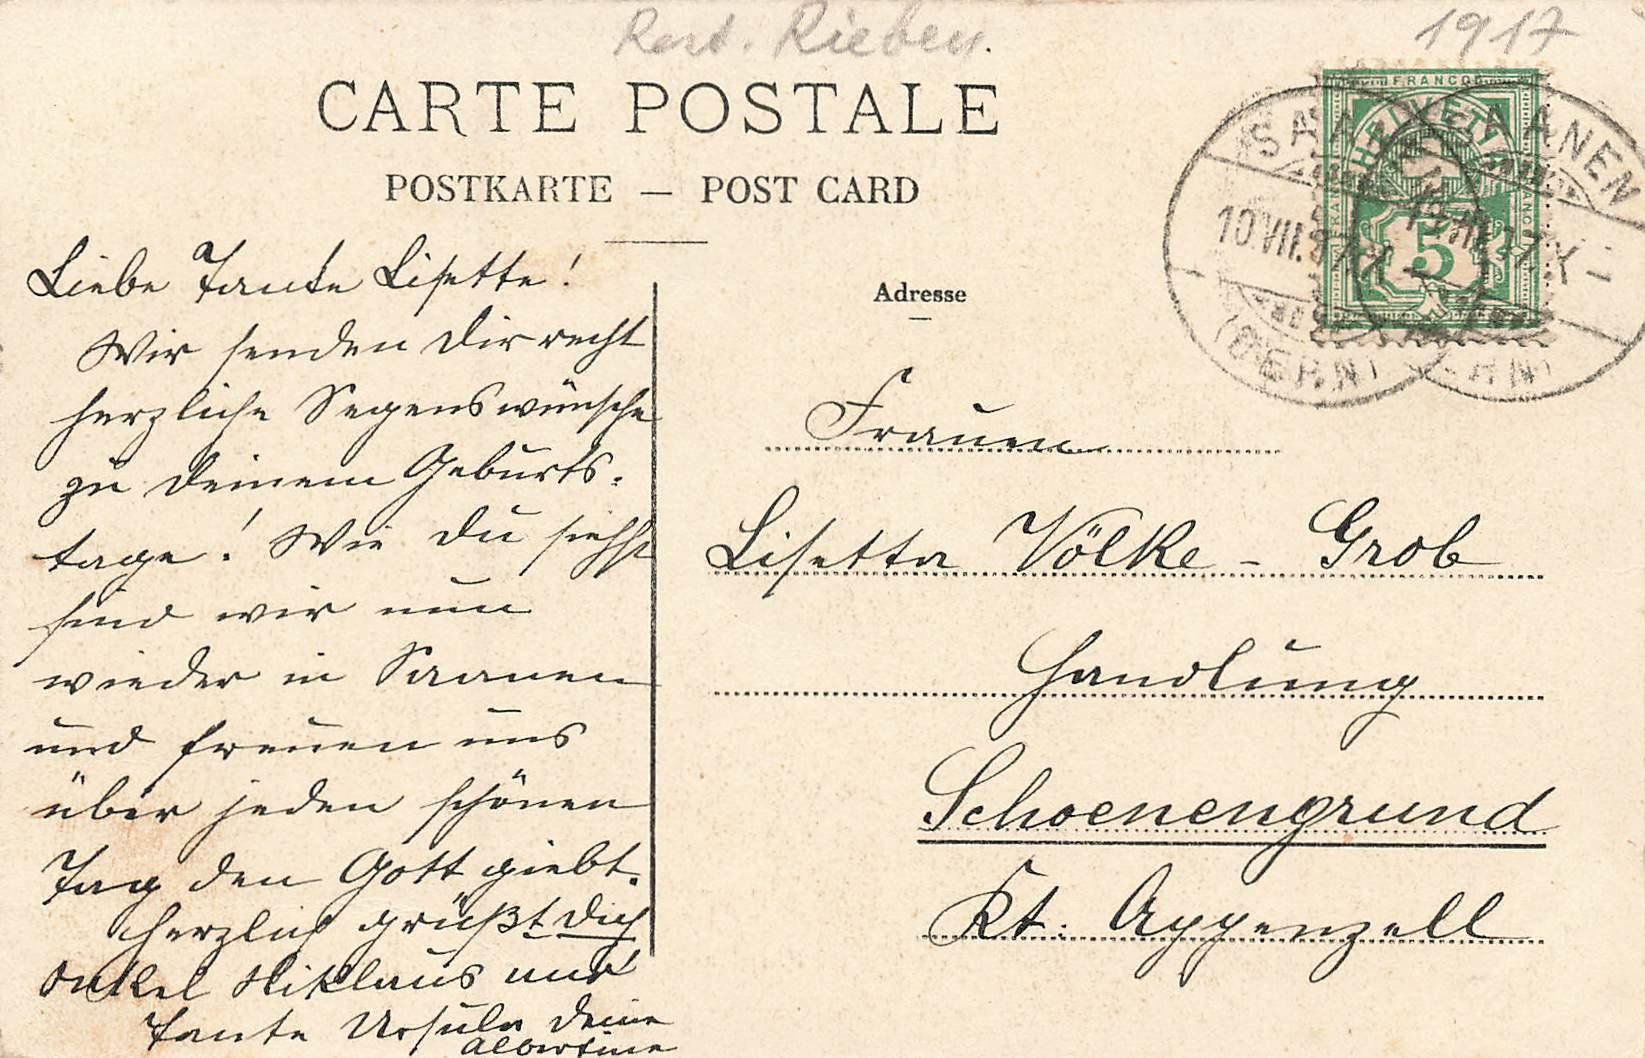 Rest. Rieben.
1917
CARTE POSTALE
POSTKARTE — POST CARD
FRANCO
HELVETIA
5
SAANEN
10.VII.
(BERN)
SAANEN
(BERN)
Liebe Tante Lisette!
Wir senden Dir recht
herzliche Segenswünsche
zu Deinem Geburts-
tage! Wie Du siehst
sind wir nun
wieder in Saanen
und freuen uns
über jeden schönen
Tag den Gott giebt.
Herzlich grüßt Dich
Onkel Niklaus und
Tante Ursula Deine
Albertine
Adresse
Frauen
Lisetta Völke - Grob
Handlung
Schoenengrund
Kt. Appenzell